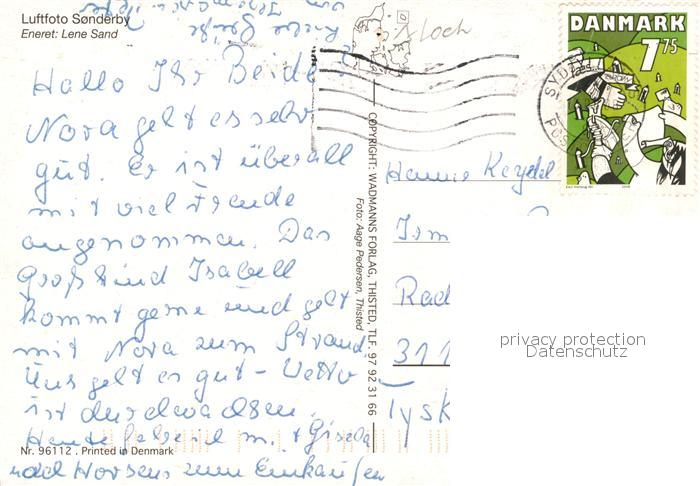 Luftfoto Sønderby
Eneret: Lene Sand
Hallo Ihr Beide!
Nora geht es sehr
gut. Er ist überall
mit viel Freude
angenommen. Das
Großkind Isabell
kommt gerne und geht
mit Nora zum Strand.
Uns geht es gut - Wetter
ist durchwachsen.
Heute fahren m. + Gisela
nach Horsens zum Einkaufen
Nr. 96112 . Printed in Denmark
COPYRIGHT: WADMANNS FORLAG, THISTED, TLF. 97 92 31 66
Foto: Aage Pedersen, Thisted
DANMARK
7 75
SYD
POS
Hanne Keydel
Irm
Rad
311
Tysk
privacy protection
Datenschutz